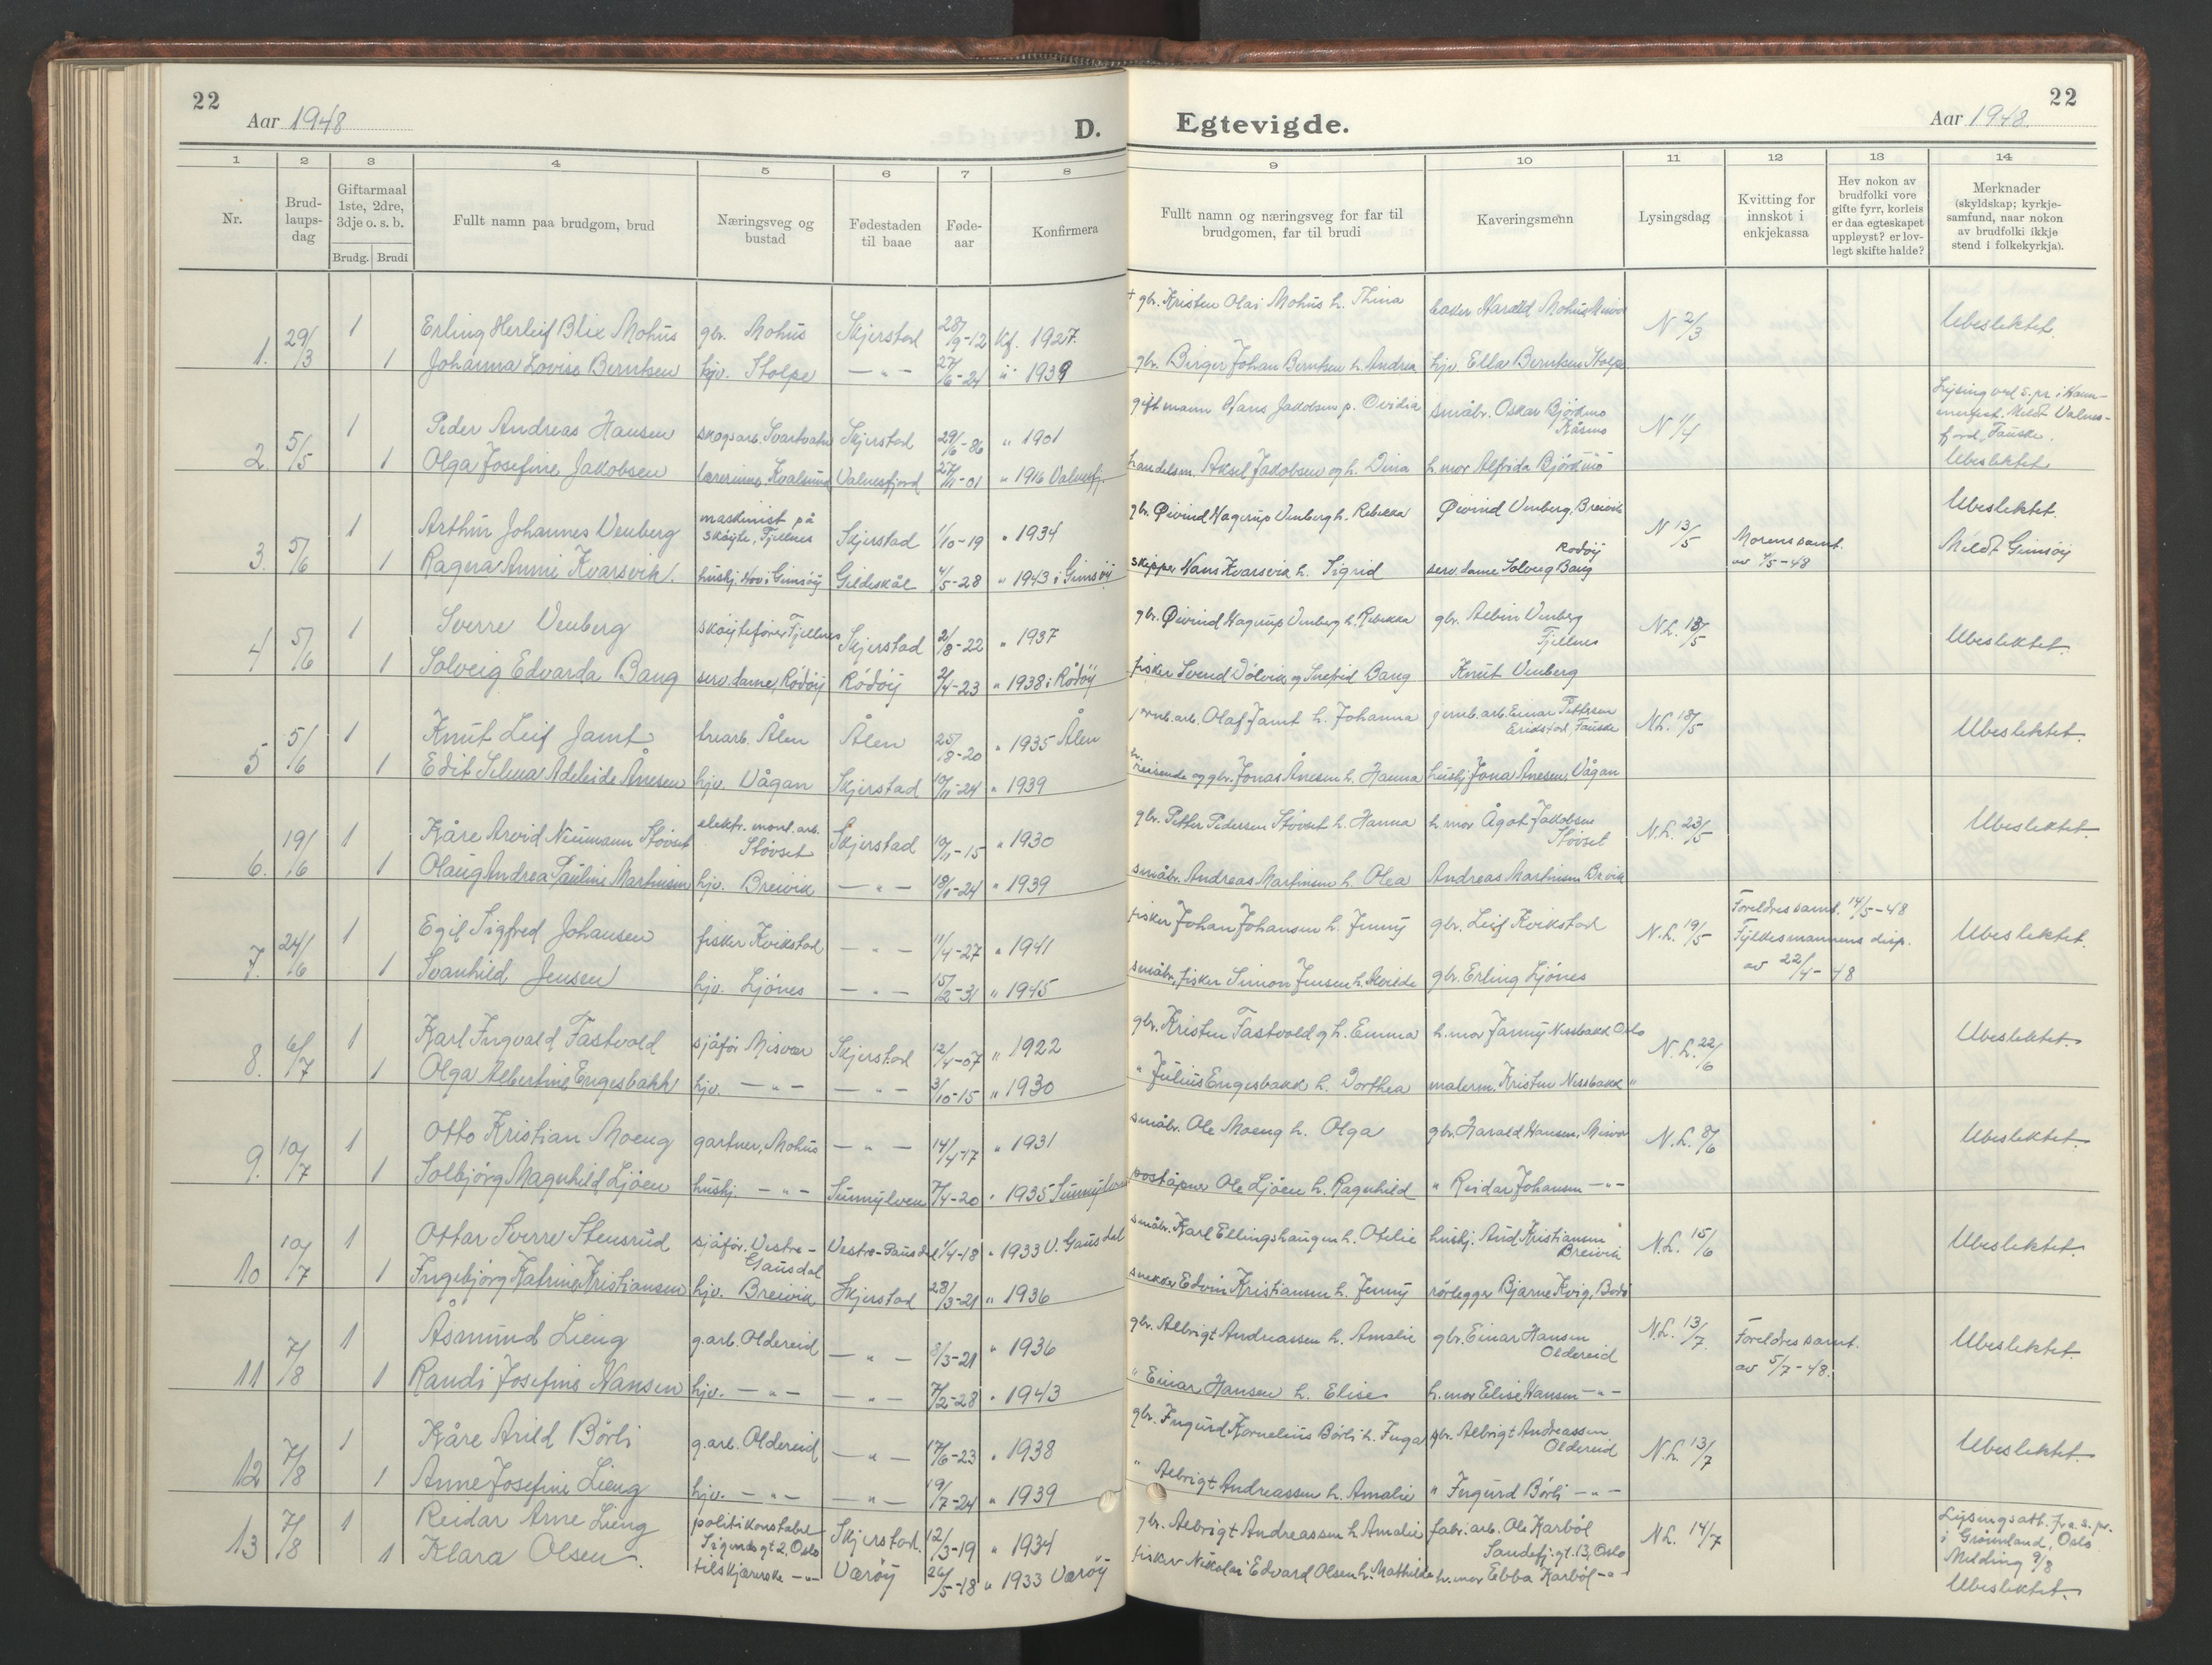 22
Aar 1948
D.
1 2 3 4 5 6 7 8
Nr.
Brud-
laups-
dag
Giftarmaal
1ste, 2dre,
3dje o. s. b.
Brudg. Brudi
Fullt namn paa brudgom, brud
Næringsveg og
bustad
Fødestaden
til baae
Føde-
aar
Konfirmera
1. 29/3 1 Erling Herleif Blix Mohus gbr. Mohus Skjerstad 28/9-12 Kf. 1927.
1 Johanna Lovise Berntsen hjv. Stolpe — " — 27/6-24 " 1939
2. 5/5 1 Peder Andreas Hansen skogsarb. Svartvatn Skjerstad 29/6-86 " 1901
1 Olga Josefine Jakobsen lærerinne, Kvalsund Valnesfjord 27/11-01 " 1916 Valnesfj.
3. 5/6 1 Arthur Johannes Venberg maskinist på
skøyte, Fjellnes Skjerstad 1/10-19 " 1934
1 Ragna Anni Kvarsvik. hushj. Hov i Gimsøy Gildeskål 4/5-28 " 1943 i Gimsøy
4 5/6 1 Sverre Venberg skøytefører Fjellnes Skjerstad 2/8-22 " 1937
1 Solveig Edvarda Bang serv.dame, Rødøy Rødøy 2/4-23 " 1938 i Rødøy
5 5/6 1 Knut Leif Jamt trearb. Ålen Ålen 25/8-20 " 1935 Ålen
1 Edit Selma Adeleide Ånesen hjv. Vågan Skjerstad 10/11-24 " 1939
6. 19/6 1 Kåre Arvid Neumann Støvset elektr. mont. arb.
Støvset Skjerstad 10/11-15 " 1930
1 Olaug Andrea Pauline Martinsen hjv. Breivik — " — 18/1-24 " 1939
7. 24/6 1 Egil Sigfred Johansen fisker Kvikstad — " — 11/4-27 " 1941
1 Svanhild Jensen hjv. Ljønes — " — 15/2-31 " 1945
8. 6/7 1 Karl Ingvald Fastvold sjåfør Misvær Skjerstad 12/4-07 " 1922
1 Olga Albertine Engesbakk hjv. — " — — " — 3/10-15 " 1930
9. 10/7 1 Otto Kristian Moeng gartner, Mohus — " — 14/4-17 " 1931
1 Solbjørg Magnhild Ljøen hushj. — " — Sunnylven 7/4-20 " 1935 Sunnylven
10 10/7 1 Ottar Sverre Stensrud sjåfør. Vestre-
Gausdal Vestre-Gausdal 1/4-18 " 1933 V. Gausdal
1 Ingebjørg Katrine Kristiansen hjv. Breivik Skjerstad 28/3-21 " 1936
11 7/8 1 Åsmund Lieng g.arb. Oldereid — " — 8/3-21 " 1936
1 Randi Josefine Hansen hjv. — " — — " — 7/2-28 " 1943
12 7/8 1 Kåre Arild Børli g.arb. Oldereid — " — 17/6-23 " 1938
1 Anne Josefine Lieng hjv. — " — — " — 19/7-24 " 1939
13 7/8 1 Reidar Arne Lieng politikonstabel
Sigurdsgt 2, Oslo Skjerstad. 12/3-19 " 1934
1 Klara Olsen. tilskjærerske — " — Værøy 26/5-18 " 1933 Værøy
22
Aar 1948.
Egtevigde.
9 10 11 12 13 14
Fullt namn og næringsveg for far til
brudgomen, far til brudi
Kaveringsmenn
Lysingsdag
Kvitting for
innskot i
enkjekassa
Hev nokon av
brudfolki vore
gifte fyrr, korleis
er daa egteskapet
uppløyst? er lov-
legt skifte halde?
Merknader
(skyldskap; kyrkje-
samfund, naar nokon
av brudfolki ikkje
stend i folkekyrkja).
+ gbr. Kristen Olai Mohus h. Thina baker Harald Mohus, Misvær N 2/3 Ubeslektet.
gbr. Birger Johan Berntsen h. Andrea hjv. Ella Berntsen Stolpe.
gift mann Hans Jakobsen p. Ovidia småbr. Oskar Bjørdmo
Råsmo N 1/4 Lysing ved s.pr. i Ham-
merfest. Meldt Valnes-
fjord, Fauske.
handelsm. Aksel Jakobsen og h. Dina h.mor Alfrida Bjørdmo Ubeslektet
gbr. Øivind Hagerup Venberg h. Rebekka Øivind Venberg, Breivik N 13/5 Morens samt.
av 4/5-48 Ubeslektet.
Meldt Gimsøy
skipper Hans Kvarsvik h. Sigrid serv.dame Solveig Bang
Rødøy
gbr. Øivind Hagerup Venberg h. Rebekka gbr. Albin Venberg
Fjellnes N.L. 18/5 Ubeslektet.
fisker Sverd Dølvik og Snefrid Bang Knut Venberg
jernb.arb. Olaf Jamt h. Johanna jernb.arb. Einar Pettersen
Erikstad, Fauske N.L. 18/5 Ubeslektet.
reisende og gbr. Jonas Ånesen h. Hanna hushj. Jona Ånesen, Vågan
gbr. Petter Pedersen Støvset h. Hanna h.mor Ågot Jakobsen
Støvset N.L. 23/5 Ubeslektet
småbr. Andreas Martinsen h. Olea Andreas Martinsen Breivik
fisker Johan Johansen h. Jenny gbr. Leif Kvikstad N.L. 19/5 Foreldres samt. 14/5-48
Fylkesmannens disp.
av 22/4-48 Ubeslektet.
småbr., fisker Simon Jensen h. Alvilde gbr. Erling Ljønes
gbr. Kristen Fastvold og h. Emma h.mor Fanny Nessbakk Oslo N.L. 22/6 Ubeslektet.
" Julius Engesbakk h. Dorthea malerm. Kristen Nessbakk "
småbr. Ole Moeng h. Olga gbr. Harald Hansen, Misvær N.L. 8/6 Ubeslektet.
poståpner Ole Ljøen h. Ragnhild " Reidar Johansen — " —
småbr. Karl Ellingshaugen h. Otelie hushj. Aud Kristiansen
Breivik N.L. 15/6 Ubeslektet.
snekker Edvin Kristiansen h. Jenny rørlegger Bjarne Kvig, Bodø
gbr. Albrigt Andreassen h. Amalie gbr. Einar Hansen
Oldereid N.L. 13/7. Foreldres samt.
av 5/7-48. Ubeslektet.
" Einar Hansen h. Elise h.mor Elise Hansen — " —
gbr. Ingurd Kornelius Børli h. Inga gbr. Albrigt Andreassen
Oldereid N.L. 13/7 Ubeslektet.
" Albrigt Andreassen h. Amalie " Ingurd Børli — " —
gbr. Albrigt Andreassen h. Amalie fabr. arb. Ole Karbøl
Sandefj.gt. 13, Oslo N.L. 14/7 Lysingsatt. fra s.pr.
i Grønland, Oslo
Melding 9/8
fisker Nikolai Edvard Olsen h. Mathilde h.mor Ebba Karbøl — " — Ubeslektet.